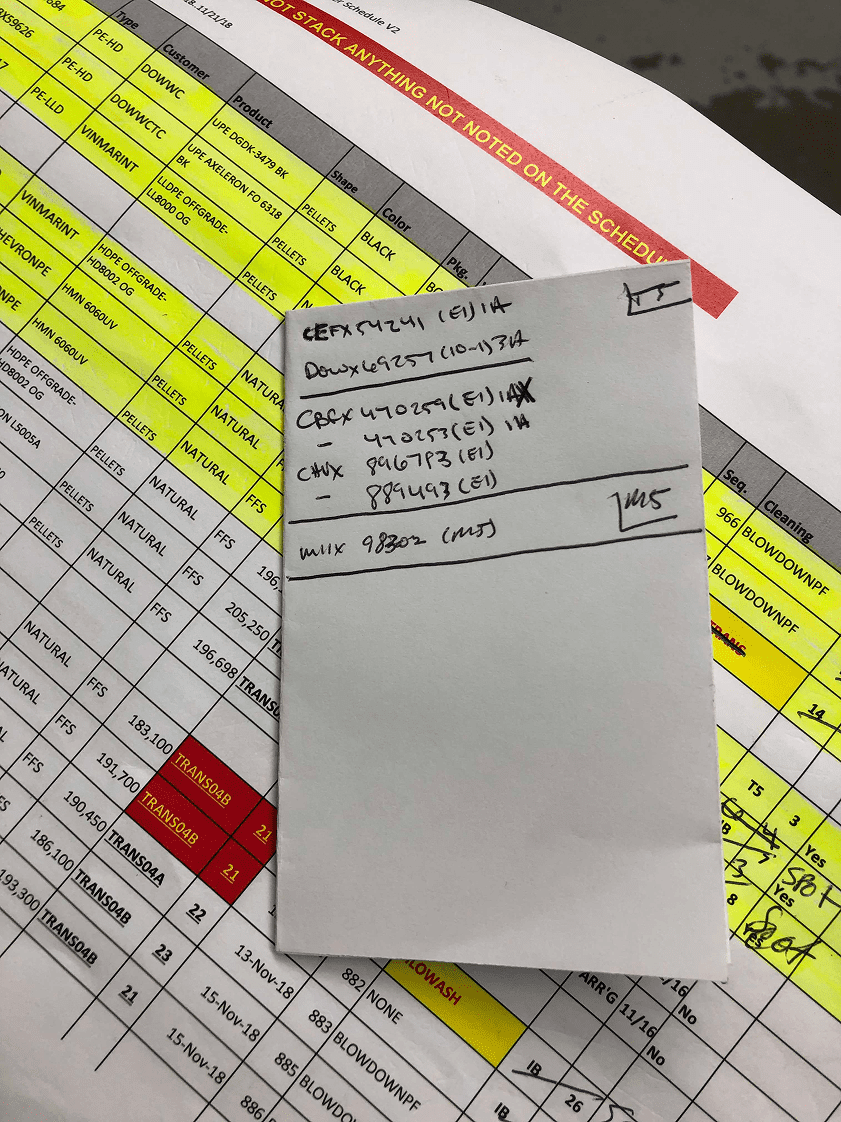 18.11/21/18
er Schedule V2
NOT STACK ANYTHING NOT NOTED ON THE SCHEDU
Type Customer Product Shape Color Pkg.
Seq. Cleaning
684
PE-HD DOWWC UPE DGDK-3479 BK PELLETS BLACK
X59626 PE-HD DOWWCTC UPE AXELERON FO 6318 BK PELLETS BLACK
PE-LLD VINMARINT LLDPE OFFGRADE-LL8000 OG PELLETS
VINMARINT HDPE OFFGRADE-HD8002 OG PELLETS NATURA
HEVRONPE HMN 6060UV PELLETS NATURAL
NPE HMN 6060UV PELLETS NATURAL FFS
HDPE OFFGRADE-HD8002 OG PELLETS NATURAL FFS 196,
ON L5005A PELLETS NATURAL FFS 205,250
PELLETS NATURAL FFS 196,698 TRANS0
NATURAL FFS 183,100 TRANS04B 21
NATURAL FFS 191,700 TRANS04B 21
FFS 190,450 TRANS04A 22
186,100 TRANS04B 23
193,300 TRANS04B 21
T5
CEFX54241 (E1) 1A
DOWX69257 (10-1) 3A
CBCX 470259 (E1) 1A
– 470253 (E1) 1A
CHVX 896793 (E1)
– 889493 (E1)
M5
98302 (M5)
966 BLOWDOWNPF
7 BLOWDOWNPF
TRANS
14
T5 3 Yes
3 Yes SPOT
8 Yes Spot
13-Nov-18 882 NONE
15-Nov-18 883 BLOWDOWNPF
15-Nov-18 885 BLOWDOW
886
LOWASH
ARR'G 11/16 No
/16 No
IB 26
IB